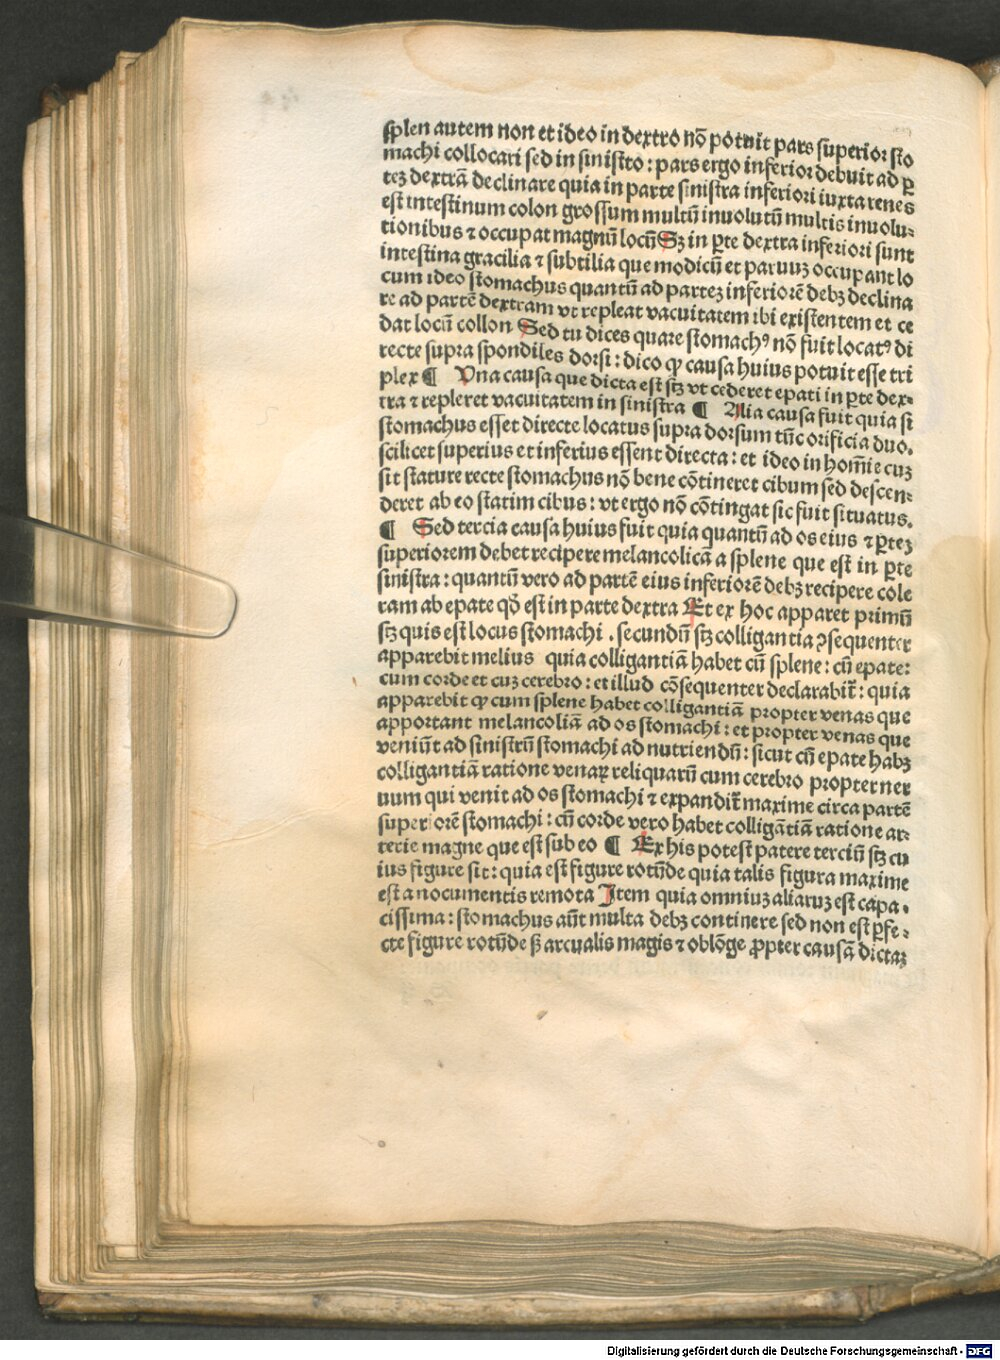 splen autem non et ideo in dextro nō potuit pars superior sto
machi collocari sed in sinistro : pars ergo inferior debuit ad ꝑ
teꝫ dextrā declinare quia in parte sinistra inferiori iuxta renes
est intestinum colon grossum multū inuolutū multis inuolu⸗
tionibus ⁊ occupat magnū locū Sꝫ in ꝑte dextra inferiori sunt
intestina gracilia ⁊ subtilia que modicū et paruuꝫ occupant lo
cum ideo stomachus quantū ad parteꝫ inferiorē debꝫ declina
re ad partē dextram vt repleat vacuitatem ibi existentem et ce
dat locū collon Sed tu dices quare stomachꝰ nō fuit locatꝰ di
recte supra spondiles dorsi : dico ꝙ causa huius potuit esse tri
plex ¶ Una causa que dicta est sꝫ vt cederet epati in ꝑte dex⸗
tra ⁊ repleret vacuitatem in sinistra ¶ Alia causa fuit quia si
stomachus esset directe locatus supra dorsum tūc orificia duo.
scilicet superius et inferius essent directa : et ideo in hoīmie cuꝫ
sit stature recte stomachus nō bene cōtineret cibum sed descen⸗
deret ab eo statim cibus : vt ergo nō cōtingat sic fuit situatus.
¶ Sed tercia causa huius fuit quia quantū ad os eius ⁊ ꝑteꝫ
superiorem debet recipere melancolicā a splene que est in ꝑte
sinistra : quantū vero ad partē eius inferiorē debꝫ recipere cole
ram ab epate qđ est in parte dextra Et ex hoc apparet primū
sꝫ quis est locus stomachi . secundū sꝫ colligantia ꝯsequenter
apparebit melius quia colligantiā habet cū splene : cū epate :
cum corde et cuꝫ cerebro : et illud cōsequenter declarabit̄ : quia
apparebit ꝙ cum splene habet colligantiā propter venas que
apportant melancoliā ad os stomachi : et propter venas que
veniūt ad sinistrū stomachi ad nutriendū : sicut cū epate habꝫ
colligantiā ratione venaꝝ reliquarū cum cerebro propter ner
uum qui venit ad os stomachi ⁊ expandit̄ maxime circa partē
superiorē stomachi : cū corde vero habet colligātiā ratione ar⸗
terie magne que est sub eo ¶ Ex his potest patere terciū sꝫ cu
ius figure sit : quia est figure rotūde quia talis figura maxime
est a nocumentis remota Item quia omniuꝫ aliaruꝫ est capa .
cissima : stomachus aūt multa debꝫ continere sed non est ꝑfe⸗
cte figure rotūde ß arcualis magis ⁊ oblōge ꝓpter causā dictaꝫ
Digitalisierung gefördert durch die Deutsche Forschungsgemeinschaft - DFG